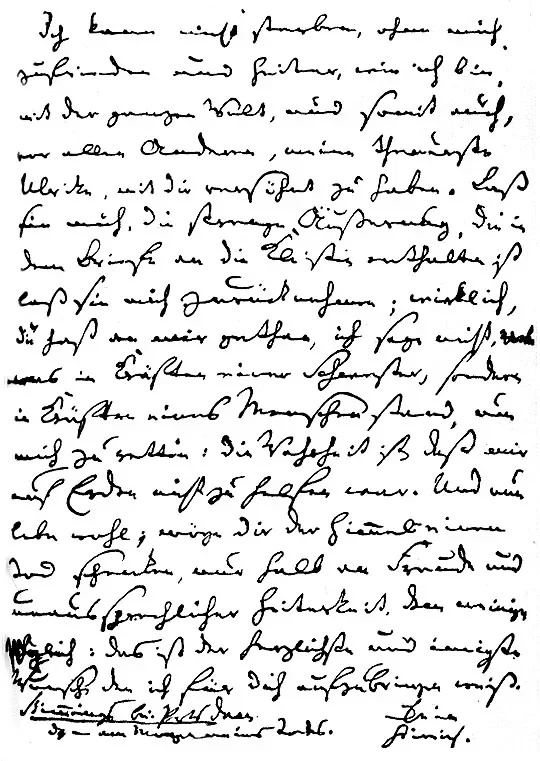 Ich kann nicht sterben, ohne mich,
zufrieden und heiter, wie ich bin,
mit der ganzen Welt, und somit auch,
vor allen Anderen, meine theuerste
Ulrike, mit dir versöhnt zu haben. Laß
sie mich, die strenge Äußerung, die in
dem Briefe an die Kleisten enthalten ist
laß sie mich zurücknehmen; wirklich,
du hast an mir gethan, ich sage nicht,
was in Kräften einer Schwester, sondern
in Kräften eines Menschen stand, um
mich zu retten: die Wahrheit ist, daß mir
auf Erden nicht zu helfen war. Und nun
lebe wohl; möge dir der Himmel einen
Tod schenken, nur halb an Freude und
unaussprechlicher Heiterkeit, dem meinigen
gleich: das ist der herzlichste und innigste
Wunsch, den ich für dich aufzubringen weiß.
Stimmings bei Potsdam
d. – am Morgen meines Todes.
Dein
Heinrich.